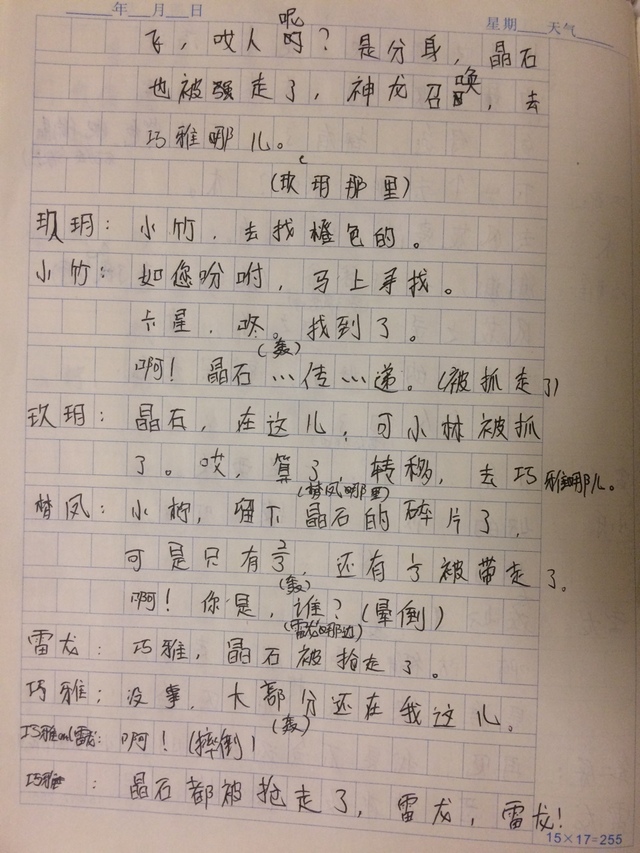 年 月 日
星期 天气
呢
飞，哎人的？是分身，晶石
也被强走了，神龙召唤，去
巧雅哪儿。
（玖玥那里）
玖玥：小竹，去找橙色的。
小竹：如您吩咐，马上寻找。
卡星，咚。找到了。
（轰）
啊！晶石…传…递。（被抓走了）
玖玥：晶石，在这儿，可小林被抓
了。哎，算了，转移，去巧雅哪儿。
（梦凤哪里）
梦凤：小构，留下晶石的碎片了，
可是只有2/3，还有1/3被带走了。
（轰）
啊！你是，谁？（晕倒）
（雷龙那边）
雷龙：巧雅，晶石被抢走了。
巧雅：没事，大部分还在我这儿。
（轰）
巧雅and雷龙：啊！（摔倒）
巧雅：晶石都被抢走了，雷龙，雷龙！
15×17=255